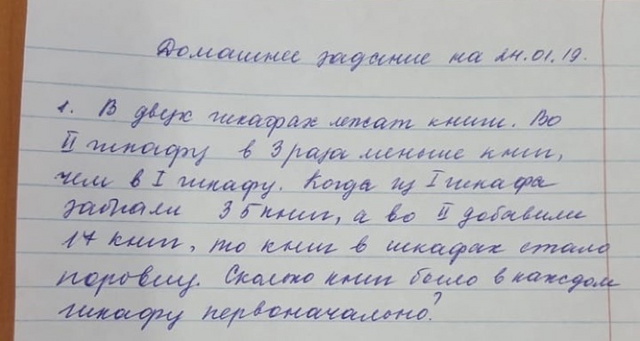 Домашнее задание на 24.01.19.
1. В двух шкафах лежат книги. Во
II шкафу в 3 раза меньше книг,
чем в I шкафу. Когда из I шкафа
забрали 35 книг, а во II добавили
17 книг, то книг в шкафах стало
поровну. Сколько книг было в каждом
шкафу первоначально?